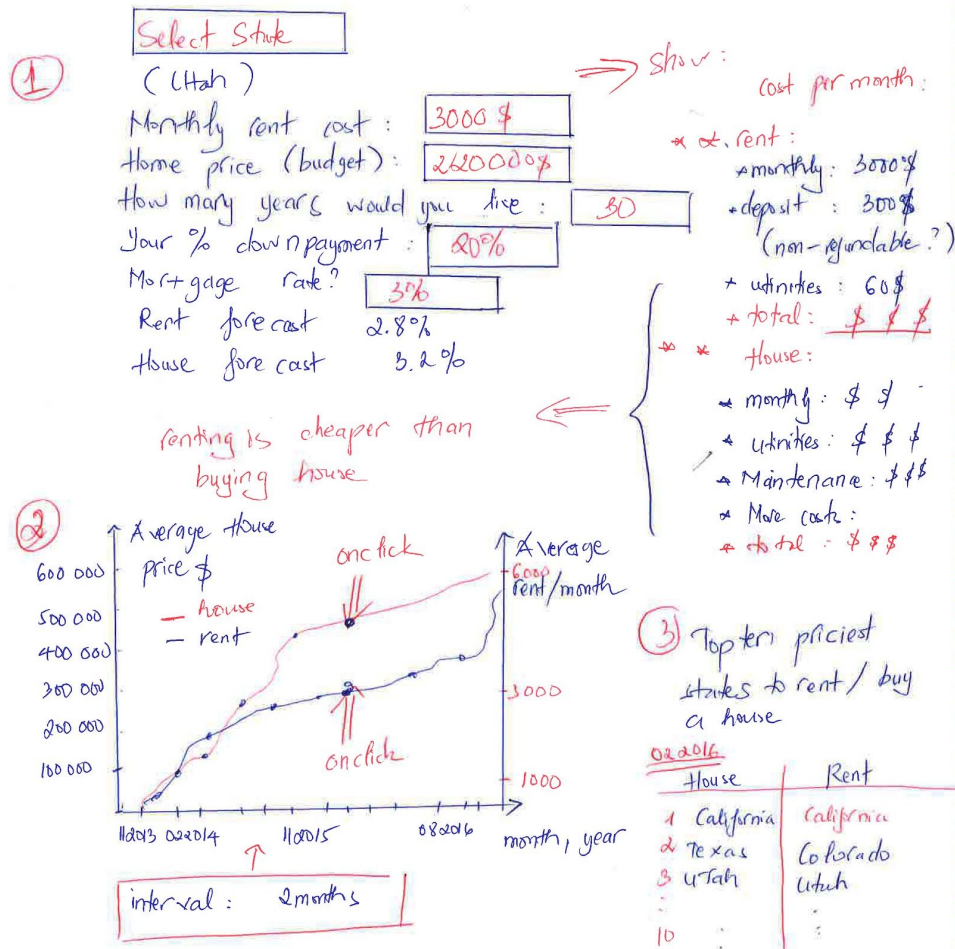 1
Select State
(Utah)
Monthly rent cost : 3000 $
Home price (budget) : 2620000$
How many years would you live : 30
Your % downpayment : 20%
Mortgage rate? 3%
Rent forecast 2.8%
House forecast 3.2%
show :
cost per month :
rent :
monthly : 3000$
deposit : 300$
(non-refundable?)
utinities : 60$
total : $ $ $
House :
monthly : $ $
utinities : $ $ $
Maintenance : $$$
More costs :
total : $ $ $
renting is cheaper than
buying house
2
Average House
price $
house
rent
600 000
500 000
400 000
300 000
200 000
100 000
onclick
onclick
Average
rent/month
6000
3000
1000
112013 022014 112015 082016
month, year
interval : 2months
3 Top ten priciest
states to rent / buy
a house
022016
House Rent
1 California California
2 Texas Colorado
3 Utah Utah
: :
10 :